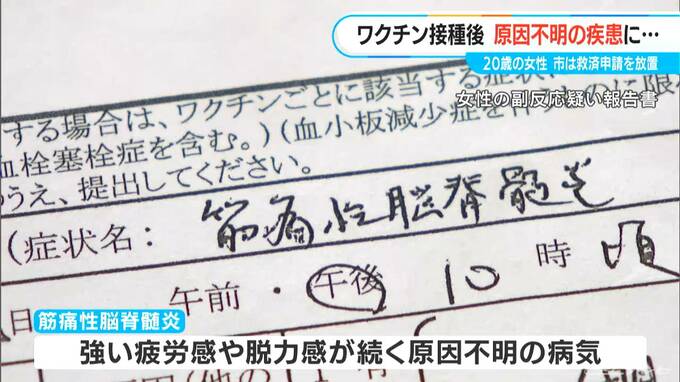 ワクチン接種後 原因不明の疾患に…
20歳の女性 市は救済申請を放置
女性の副反応疑い報告書
する場合は、ワクチンごとに該当する症状
血栓塞栓症を含む。)(血小板減少症を伴
うえ、提出してください。
(症状名: 筋痛性脳脊髄炎
日 午前・午後 10 時 頃
筋痛性脳脊髄炎
強い疲労感や脱力感が続く原因不明の病気